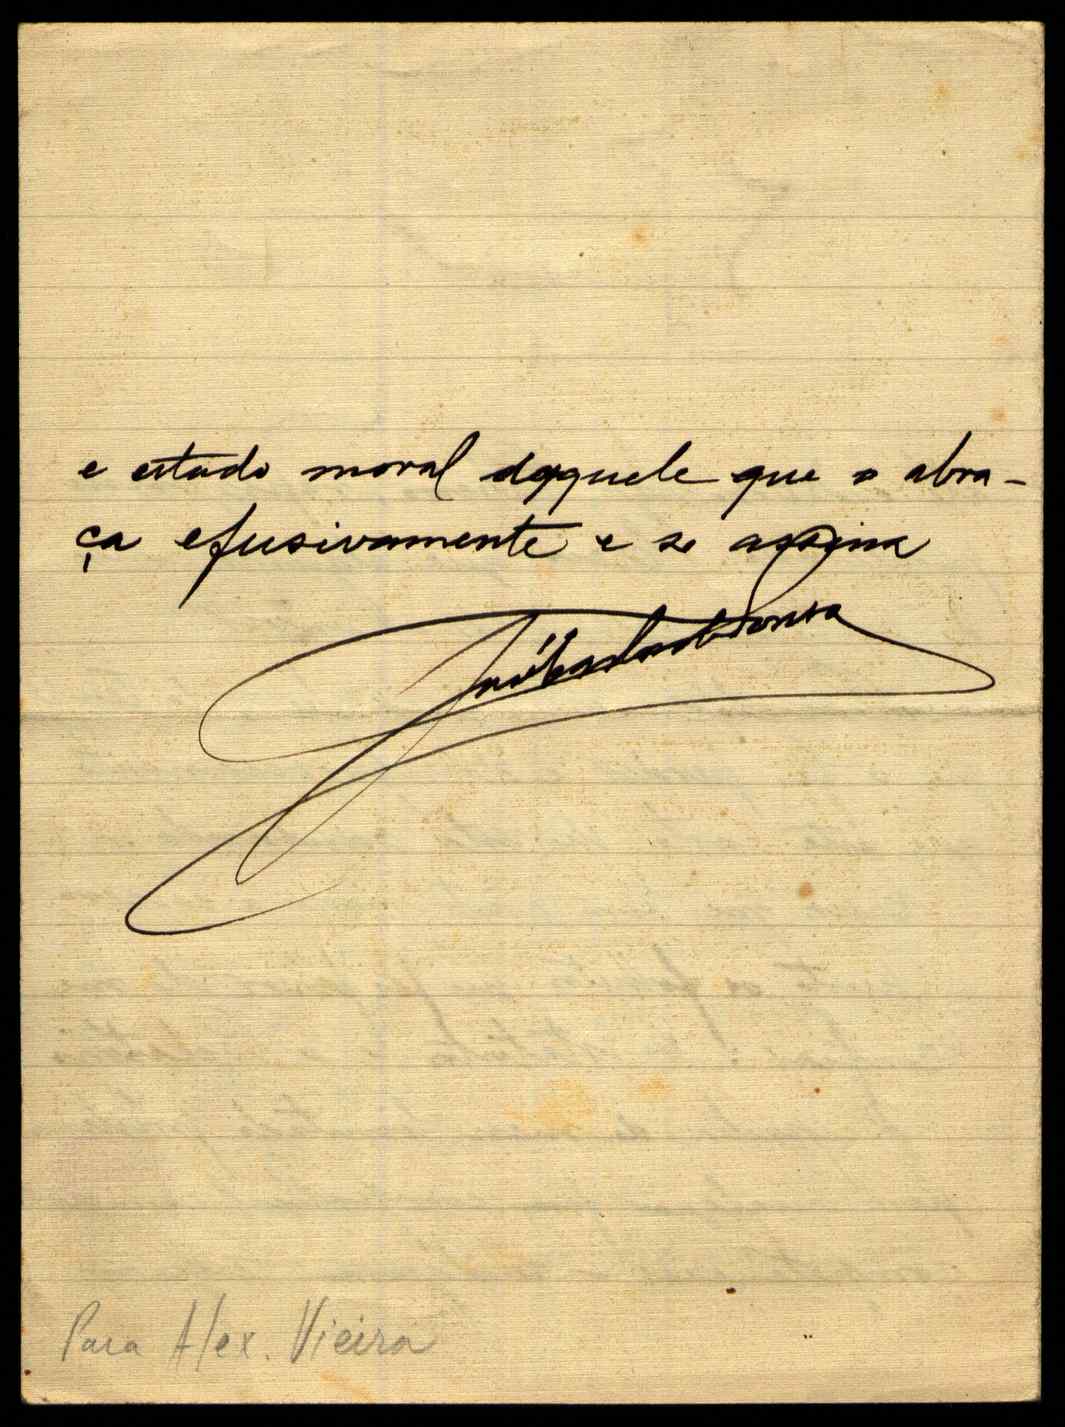 e estado moral daquele que o abra-
ça efusivamente e se assina
Para Alex. Vieira